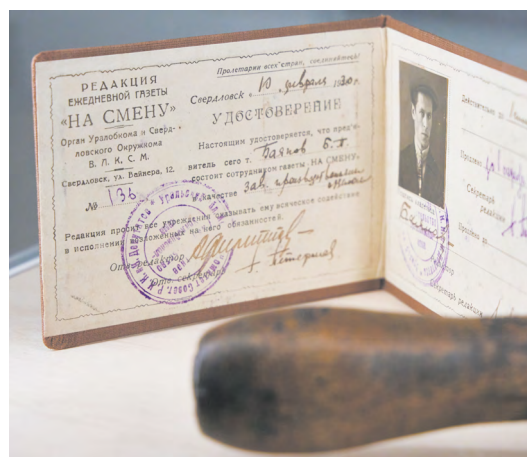 Пролетарии всех стран, соединяйтесь!
РЕДАКЦИЯ
ЕЖЕДНЕВНОЙ ГАЗЕТЫ
«НА СМЕНУ»
Орган Уралобкома и Сверд-
ловского Окружкома
В. Л. К. С. М.
Свердловск, ул. Вайнера, 12.
№ 136
Свердловск „ 10 февраля 1930 г.
УДОСТОВЕРЕНИЕ
Настоящим удостоверяется, что пред'я-
витель сего т. Баянов Б.
состоит сотрудником газеты „НА СМЕНУ„
в качестве зав.
Редакция просит все учреждения оказывать ему всяческое содействие
в исполнении возложенных на него обязанностей.
Отв. редактор
Отв. секретарь
Действительно до
Продлено до
Секретарь
редакции
Продлено до
Секретарь редакции